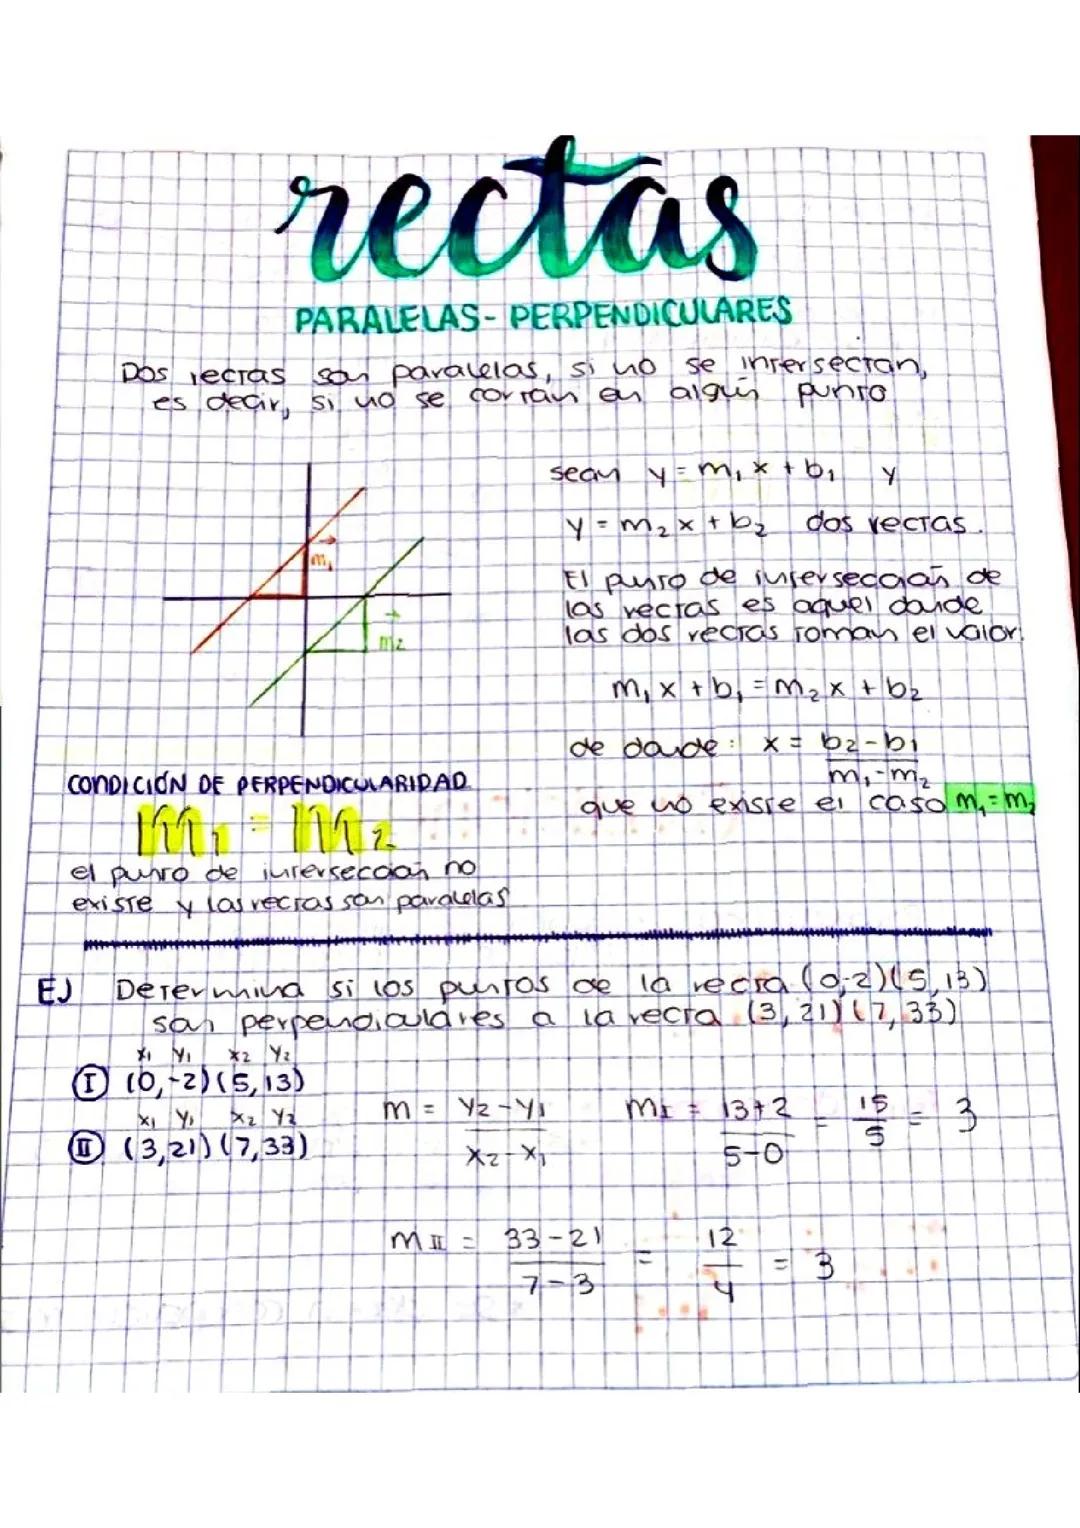 rectas
PARALELAS - PERPENDICULARES
Dos rectas son paralelas, si no se intersectan,
es decir, si no se cortan en algún punto
sean y = m₁x + b₁ y
y = m₂x + b₂ dos rectas.
El punto de intersección de
las rectas es aquel donde
las dos rectas toman el valor.
m₁x + b₁ = m₂x + b₂
de donde: x = b₂-b₁
m₁-m₂
que no existe el caso m₁=m₂
m₁
m₂
CONDICIÓN DE PERPENDICULARIDAD
m₁ = m₂
el punto de intersección no
existe y las rectas son paralelas
EJ Determina si los puntos de la recta (0,-2)(5,13)
son perpendiculares a la recta (3,21)(7,33)
x₁ y₁ x₂ y₂
I (0,-2)(5,13)
x₁ y₁ x₂ y₂
II (3,21)(7,33)
m = y₂-y₁
x₂-x₁
m_I = 13+2 = 15 = 3
5-0 5
m_II = 33-21 = 12 = 3
7-3 4